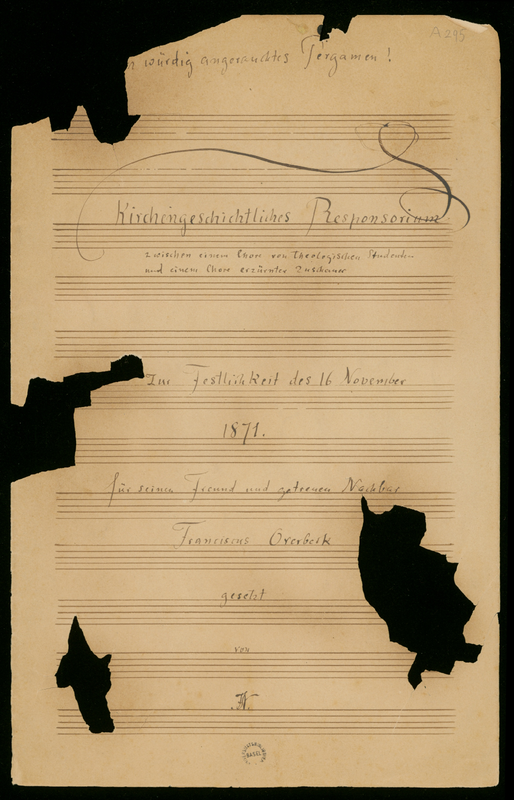 A 295
würdig angerauchtes Pergamen!
Kirchengeschichtliches Responsorium
zwischen einem Chore von Theologischen Studenten
und einem Chore erzürnter Zuschauer
Zur Festlichkeit des 16 November
1871.
für seinen Freund und getreuen Nachbar
Franciscus Overbeck
gesetzt
von
BASEL